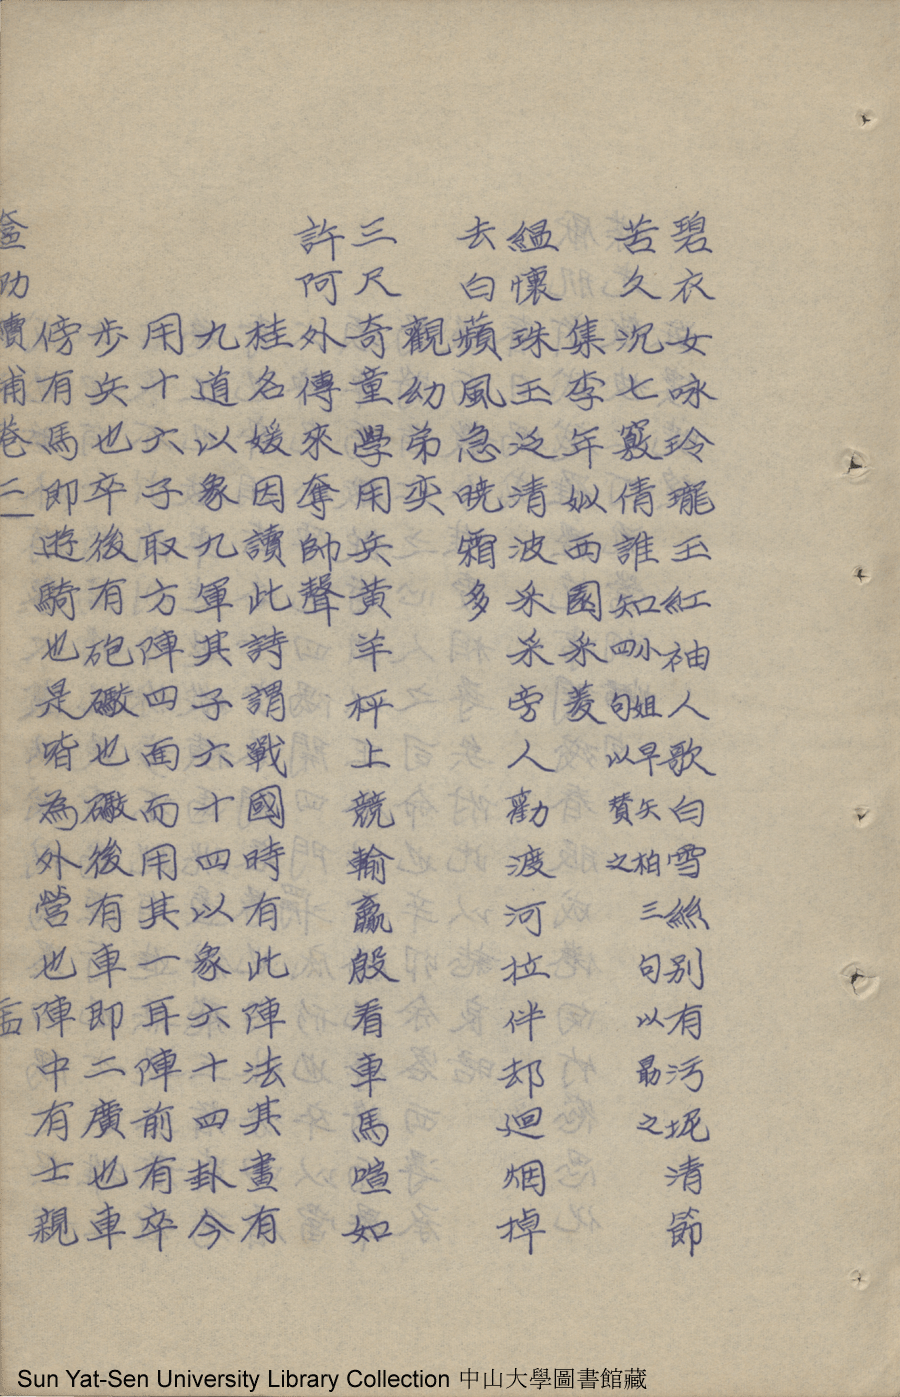 碧衣女咏玲瓏玉紅袖人歌白雪絲別有污坭清節
苦久沉七竅倩誰知
小姐早矢柏三句以勗之
四句以贊之
集李年姒西園采菱
緼懷珠玉泛清波采采旁人勸渡河拉伴却迴烟掉
去白蘋風急曉霜多
觀幼弟奕
三尺奇童學用兵黃羊枰上競輸贏殷看車馬喧如
許阿外傳來奪帥聲
桂名媛因讀此詩謂戰國時有此陣法其畫有
九道以象九軍其子六十四以象六十四卦今
用十六子取方陣四面而用其一耳陣前有卒
步兵也卒後有砲礮也礮後有車即二廣也車
傍有馬即遊騎也是皆為外營也陣中有士親
奩助續補卷三 孟
Sun Yat-Sen University Library Collection 中山大學圖書館藏